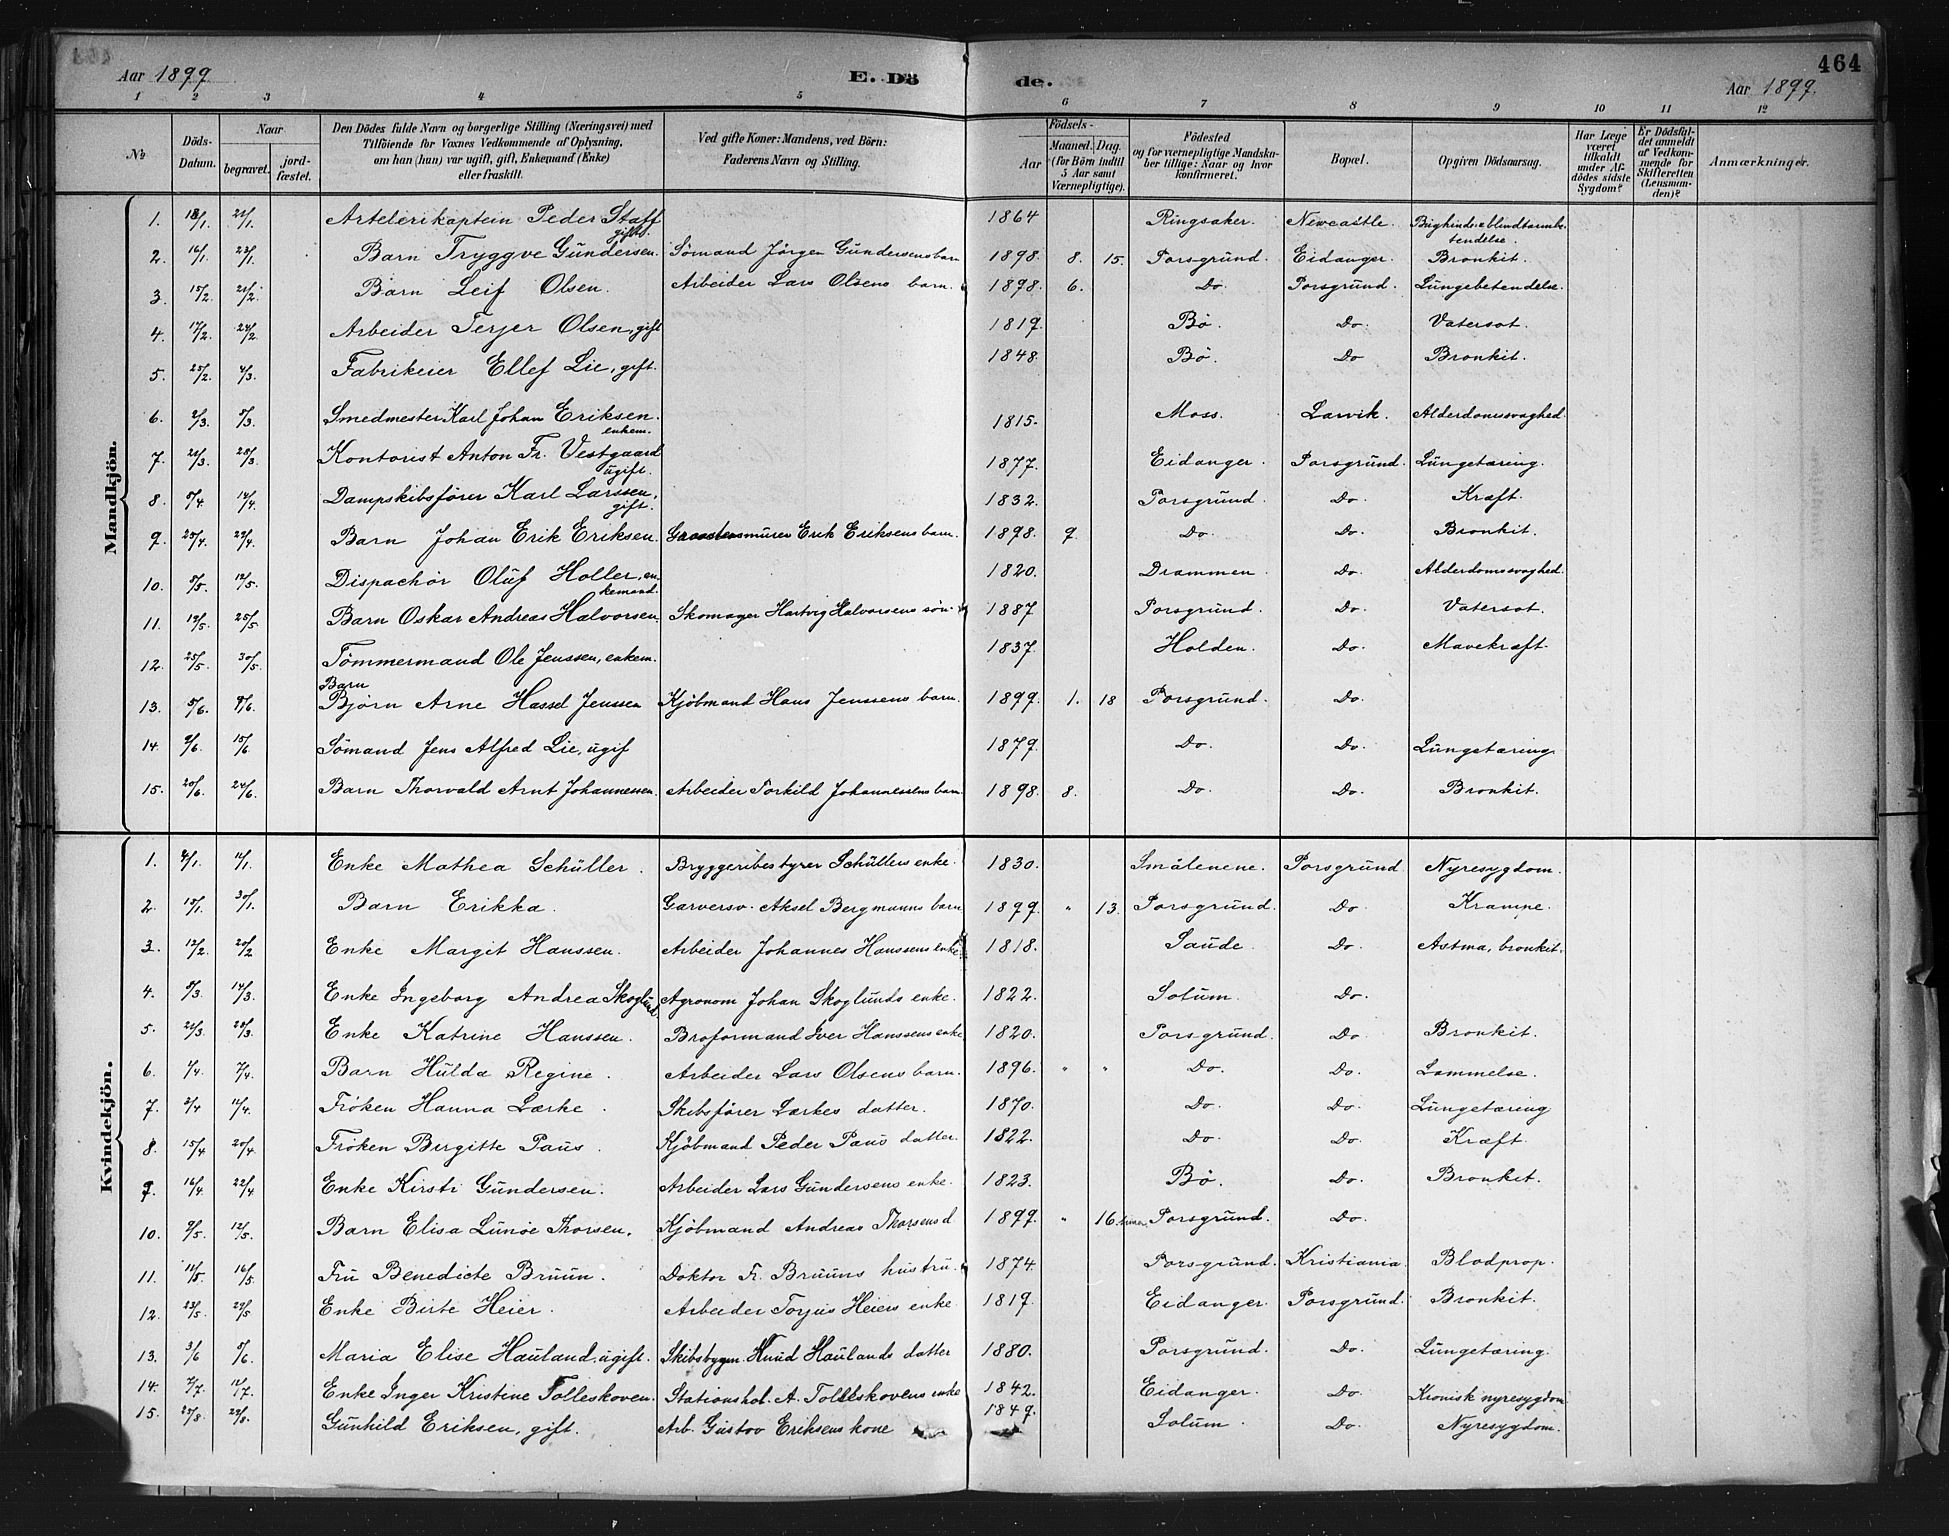 464
Aar 1899
E. Dö de.
Aar 1899.
1 2 3 4 5 6 7 8 9 10 11 12
No
Döds-Datum.
Naar
begravet.
jord-fæstet.
Den Dödes fulde Navn og borgerlige Stilling (Næringsvei) med
Tilföiende for Voxnes Vedkommende af Oplysning,
om han (hun) var ugift, gift, Enkemand (Enke)
eller fraskilt.
Ved gifte Koner: Mandens, ved Börn:
Faderens Navn og Stilling.
Födsels-
Aar
Maaned. Dag.
(for Börn indtil
5 Aar samt
Værnepligtige).
Födested
og for værnepligtige Mandska-
ber tillige: Naar og hvor
konfirmeret.
Bopæl.
Opgiven Dödsaarsag.
Har Læge
været
tilkaldt
under Af-
dödes sidste
Sygdom?
Er Dödsfal-
det anmeldt
af Vedkom-
mende for
Skifteretten
(Lensman-
den)?
Anmærkninger.
Mandkjön.
1. 18/1 21/1 Artelerikaptein Peder Staff gift. 1864 Ringsaker. Newcastle. Bughinde & blindtarmbe-tendelse.
2. 16/1. 23/1. Barn Tryggve Gundersen. Sømand Jørgen Gundersens barn 1898. 8. 15. Porsgrund. Eidanger. Bronkit.
3. 15/2. 21/2. Barn Leif Olsen. Arbeider Lars Olsens barn. 1898. 6. Do. Porsgrund. Lungebetendelse.
4. 17/2. 24/2. Arbeider Terjer Olsen, gift 1819. Bø. Do. Vatersot.
5. 25/2. 4/3. Fabrikeier Ellef Lie, gift. 1848. Bø. Do Bronkit.
6. 2/3. 9/3. Smedmester Karl Johan Eriksen. enkem. 1815. Moss. Larvik. Alderdomssvaghed.
7. 21/3. 28/3. Kontorist Anton Fr. Vestgaard ugift. 1877. Eidanger. Porsgrund. Lungetæring.
8. 8/4. 14/4. Dampskibsfører Karl Larssen, gift. 1832. Porsgrund. Do. Kræft.
9. 25/4. 29/4. Barn Johan Erik Eriksen. Graastensmurer Erik Eriksens barn. 1898. 9. Do. Do. Bronkit.
10. 5/5. 12/5. Dispachør Oluf Holler, en-kemand. 1820. Drammen Do. Alderdomssvaghed.
11. 19/5. 25/5. Barn Oskar Andreas Halvorsen, Skomager Hartvig Halvorsens søn. 1887 Porsgrund. Do. Vatersot.
12. 25/5. 30/5. Tømmermand Ole Jenssen, enkem. 1837. Holden. Do. Mavekræft.
13. 5/6. 9/6. Barn Bjørn Arne Hassel Jenssen Kjøbmand Hans Jenssens barn. 1899. 1. 18 Porsgrund. Do.
14. 9/6. 15/6. Sømand Jens Alfred Lie, ugif 1879. Do. Do. Lungetæring.
15. 20/6. 24/6. Barn Thorvald Arnt Johannessen. Arbeider Torkild Johannessens barn. 1898. 8. Do. Do. Bronkit.
Kvindekjön.
1. 4/1. 12/1. Enke Mathea Schüller. Bryggeribestyrer Schüllers enke. 1830. Smålenene. Porsgrund Nyresygdom.
2. 15/1. 30/1. Barn Erikka. Garversv. Aksel Bergmanns barn 1899. " 13. Porsgrund. Do. Krampe.
3. 12/2. 20/2 Enke Margit Hanssen. Arbeider Johannes Hanssens enke 1818. Saude. Do. Astma, bronkit.
4. 8/3. 14/3. Enke Ingeborg Andrea Skoglund Agronom Johan Skoglunds enke. 1822. Solum. Do.
5. 21/3. 28/3. Enke Katrine Hanssen. Broformand Iver Hanssens enke 1820. Porsgrund. Do. Bronkit.
6. 1/4. 7/4. Barn Hulda Regine. Arbeider Lars Olsens barn. 1896. " " Do. Do. Lammelse.
7. 2/4 11/4. Frøken Hanna Lærke. Skibsfører Lærkes datter. 1870. Do. Do. Lungetæring
8. 15/4 20/4. Frøken Birgitte Paus. Kjøbmand Peder Paus datter. 1822. Do. Do. Kræft.
9. 16/4. 22/4 Enke Kirsti Gundersen. Arbeider Lars Gundersens enke. 1823. Bø. Do. Bronkit.
10. 9/5. 12/5. Barn Elisa Lunøe Thorsen. Kjøbmand Andreas Thorsens d 1899. " 16 timer. Porsgrund. Do.
11. 11/5. 16/5. Fru Benedicte Bruun. Doktor Fr. Bruuns hustru. 1874. Porsgrund. Kristiania. Blodprop.
12. 23/5. 29/5 Enke Birte Heier. Arbeider Torjus Heiers enke 1819. Eidanger. Porsgrund. Bronkit.
13. 3/6 9/6. Maria Elise Hauland, ugift. Skibsbygm. Knud Haulands datter 1880. Porsgrund. Do. Lungetæring.
14. 7/7. 12/7. Enke Inger Kristine Tolleskoven. Stationshol. A. Tolleskovens enke 1842. Eidanger. Do. Kronisk nyresygdom
15. 25/8. 29/8. Gunhild Eriksen, gift. Arb. Gustav Eriksens kone 1849. Solum. Do. Nyresygdom.